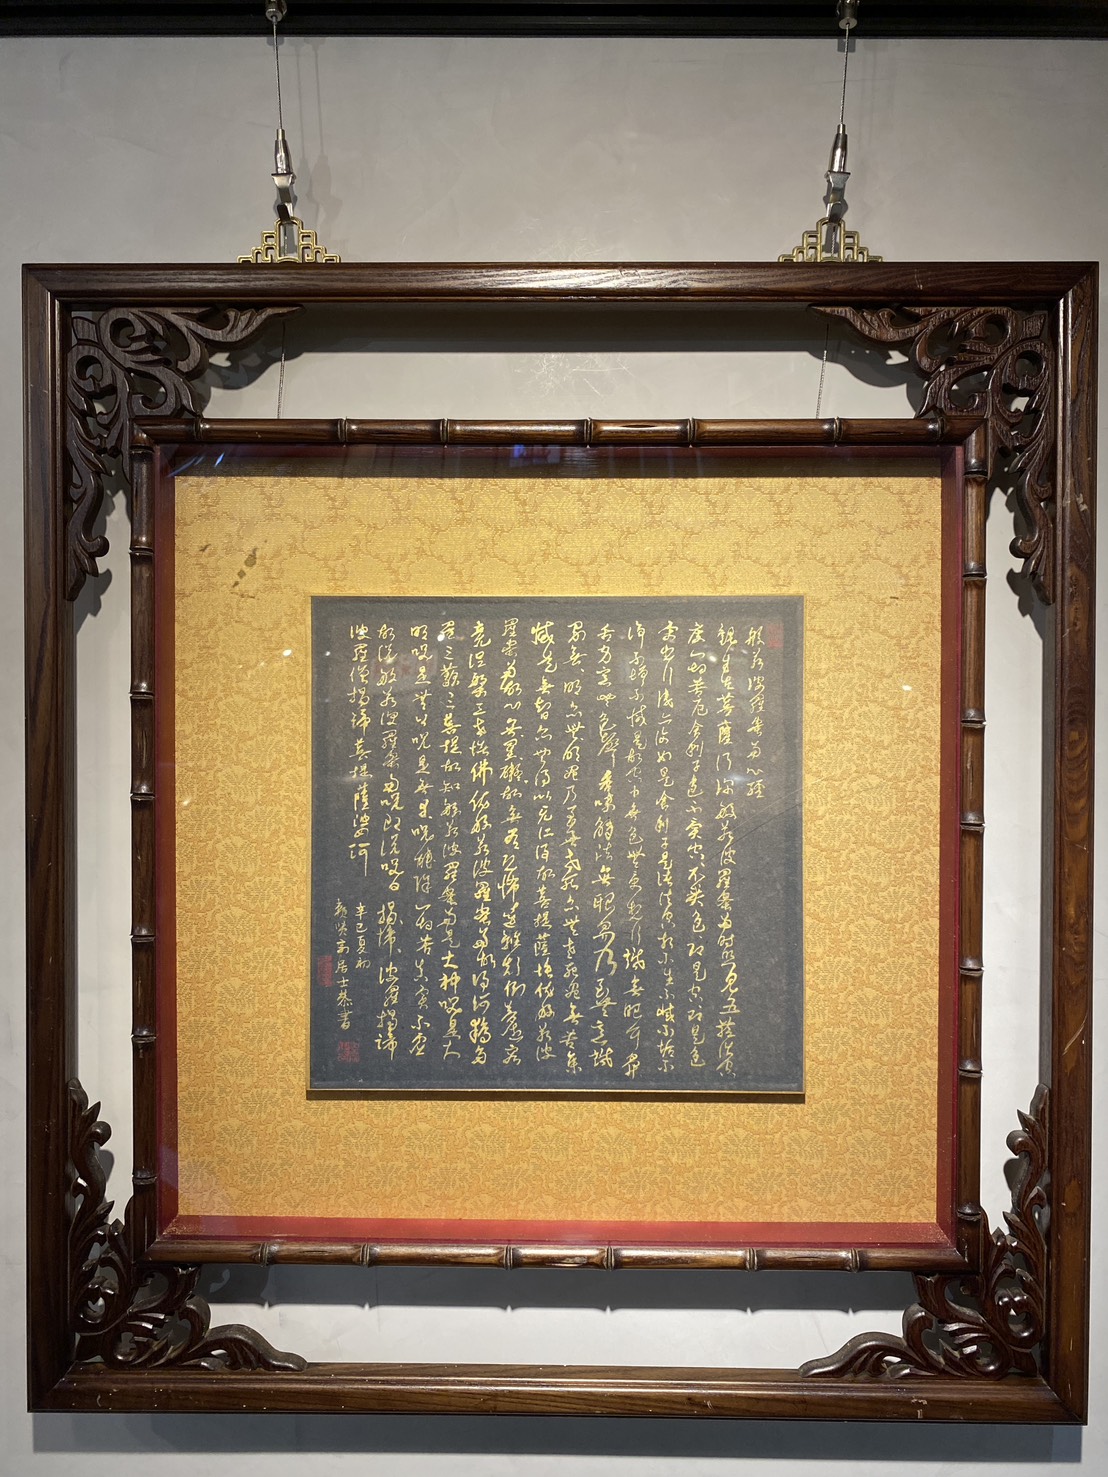 般若波羅蜜多心經
觀自在菩薩行深般若波羅蜜多時照見五蘊皆空
度一切苦厄舍利子色不異空空不異色色即是空空即是色
受想行識亦復如是舍利子是諸法空相不生不滅不垢不
淨不增不減是故空中無色無受想行識無眼耳鼻
舌身意無色聲香味觸法無眼界乃至無意識
界無無明亦無無明盡乃至無老死亦無老死盡無苦集
滅道無智亦無得以無所得故菩提薩埵依般若波
羅蜜多故心無罣礙故無有恐怖遠離顛倒夢想究
竟涅槃三世諸佛依般若波羅蜜多故得阿耨多
羅三藐三菩提故知般若波羅蜜多是大神咒是大
明咒是無上咒是無等等咒能除一切苦真實不虛
故說般若波羅蜜多咒即說咒曰揭諦揭諦波羅揭諦
波羅僧揭諦菩提薩婆訶
辛巳夏初
居士恭書